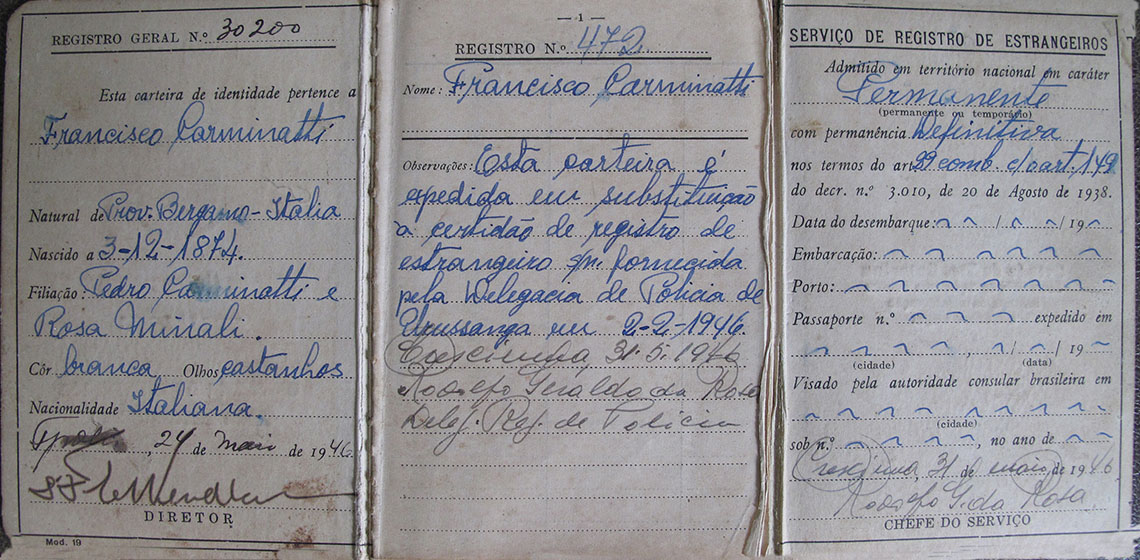 REGISTRO GERAL N.º 30200
Esta carteira de identidade pertence a
Francisco Carminatti
Natural de Prov. Bergamo - Italia
Nascido a 3-12-1874.
Filiação: Pedro Carminatti e
Rosa Minali.
Côr branca Olhos castanhos
Nacionalidade Italiana.
, 24 de Maio de 1946.
DIRETOR
Mod. 19
— 1 —
REGISTRO N.º 472
Nome: Francisco Carminatti
Observações: Esta carteira é
expedida em substituição
à certidão de registro de
estrangeiro s/n. fornecida
pela Delegacia de Policia de
Urussanga em 2-2-1946.
Cresciuma, 31.5.1946
Rodolfo Geraldo da Rosa
Delej. Rej. de Policia
SERVIÇO DE REGISTRO DE ESTRANGEIROS
Admitido em território nacional em caráter
Permanente
(permanente ou temporário)
com permanência Definitiva
nos termos do art. comb. c/o art. 149
do decr. n.º 3.010, de 20 de Agosto de 1938.
Data do desembarque: / / 19
Embarcação:
Porto:
Passaporte n.º expedido em
, / / 19
(cidade) (data)
Visado pela autoridade consular brasileira em
(cidade)
sob n.º , no ano de
Cresciuma, 31 de maio, de 1946
Rodolfo G. da Rosa
CHEFE DO SERVIÇO